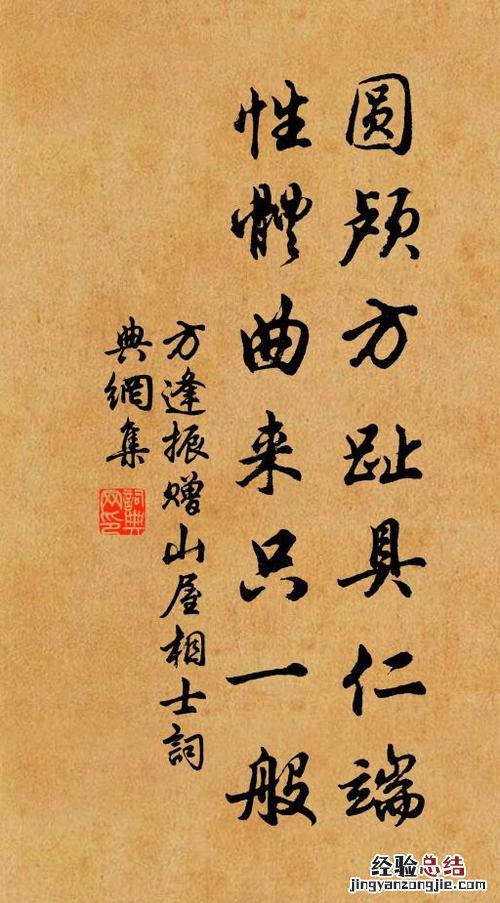 圆颅方趾具仁端
性體曲来只一般
方逢振赠山屋相士詞
典網集
詞典
网印
经验总结
jingyanzongjie.com